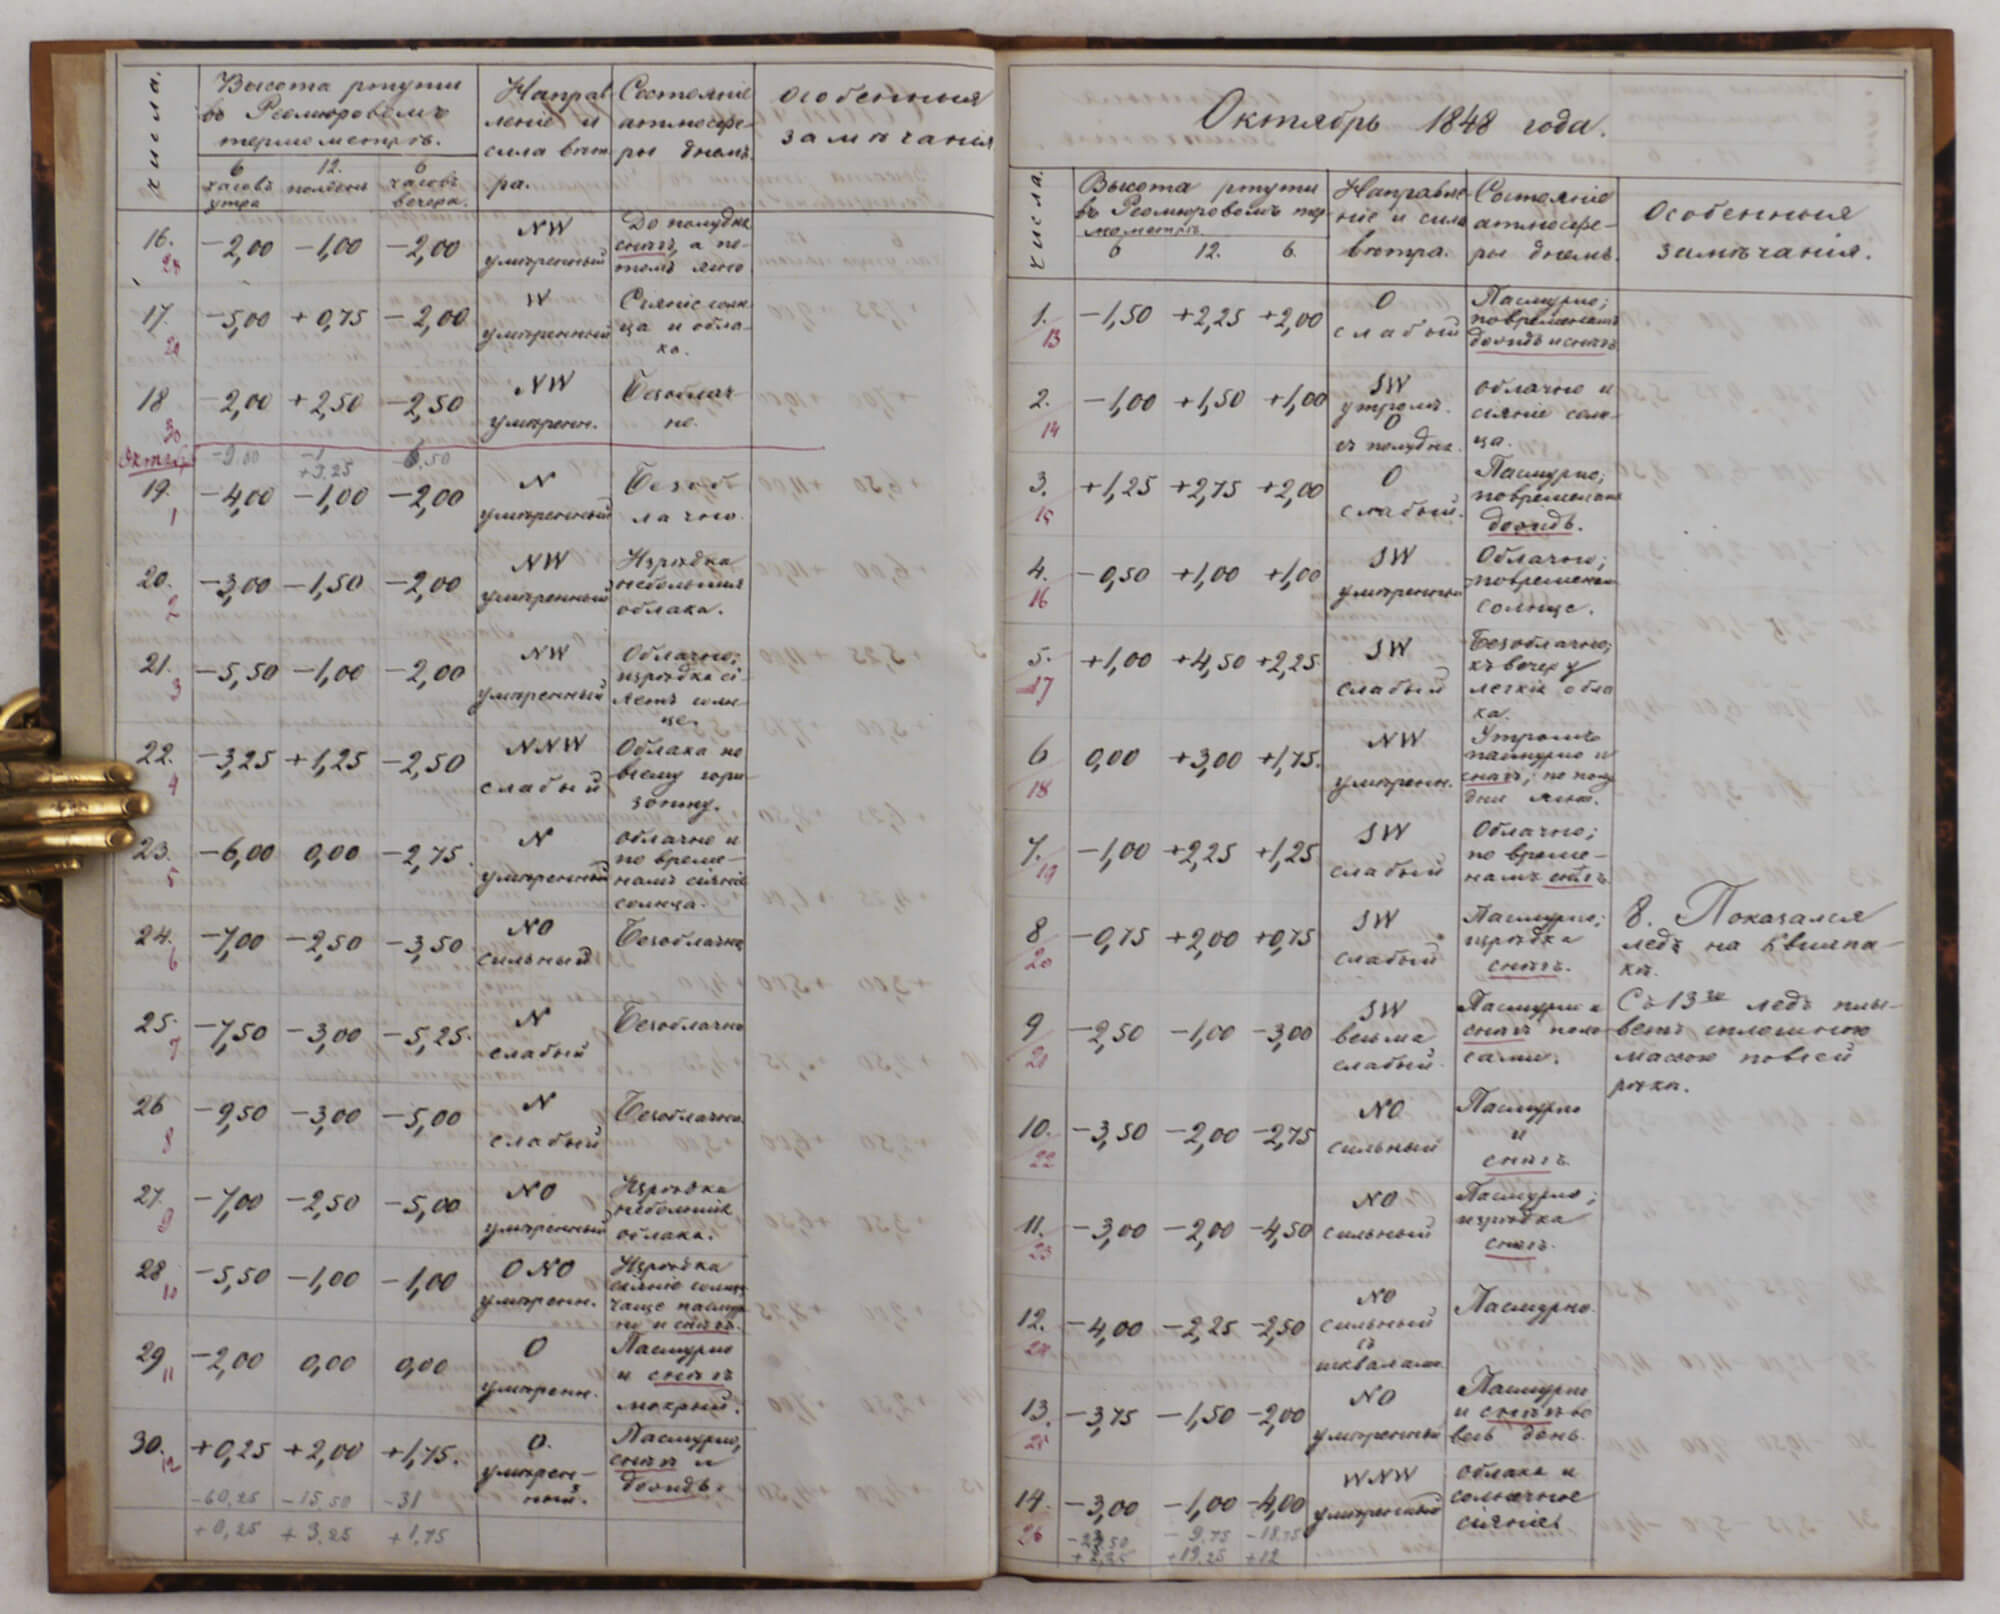 числа.
Высота ртути
въ Реомюровомъ
термометрѣ.
6 часовъ утра
12. полдень
6 часовъ вечера.
Направ
леніе и
сила вѣт
ра.
Состояніе
атмосфе-
ры днемъ.
Особенныя
замѣчанія
16. 28 −2,00 −1,00 −2,00
NW
умѣренный
До полудня
снѣгъ, а по-
томъ ясно
17. 29 −5,00 +0,75 −2,00
W
умѣренный
Сіяніе солн
ца и обла-
ка.
18 30 −2,00 +2,50 −2,50
NW
умѣренн.
Безоблач-
но.
Октяб.
−9.00 −1 −6,50
+3,25
19. 1 −4,00 −1,00 −2,00
N
умѣренный
Безоб
лачно.
20. 2 −3,00 −1,50 −2,00
NW
умѣренный
Изрѣдка
небольшія
облака.
21. 3 −5,50 −1,00 −2,00
NW
умѣренный
Облачно;
изрѣдка сі-
яетъ солн-
це.
22. 4 −3,25 +1,25 −2,50
NNW
слабый
Облака по
всему гори-
зонту.
23. 5 −6,00 0,00 −2,75
N
умѣренный
облачно и
по време-
намъ сіяніе
солнца.
24. 6 −7,00 −2,50 −3,50
NO
сильный
Безоблачно
25. 7 −7,50 −3,00 −5,25.
N
слабый
Безоблачно
26 8 −9,50 −3,00 −5,00
N
слабый
Безоблачно.
27. 9 −7,00 −2,50 −5,00
NO
умѣренный
Изрѣдка
небольшія
облака.
28 10 −5,50 −1,00 −1,00
ONO
умѣренн.
Изрѣдка
сіяніе солнца
чаще пасмур
но и снѣгъ.
29 11 −2,00 0,00 0,00
O
умѣренн.
Пасмурно
и снѣгъ
мокрый.
30. 12 +0,25 +2,00 +1,75.
O.
умѣрен-
ный.
Пасмурно,
снѣгъ и
дождь.
−60,25 −15,50 −31
+0,25 +3,25 +1,75
Октябрь 1848 года.
числа.
Высота ртути
въ Реомюровомъ тер
мометрѣ.
6 12. 6.
Направле-
ніе и сила
вѣтра.
Состояніе
атмосфе-
ры днемъ.
Особенныя
замѣчанія.
1. 13 −1,50 +2,25 +2,00
O
слабый
Пасмурно;
повременамъ
дождь и снѣгъ
2. 14 −1,00 +1,50 +1,00
SW
утромъ.
O
съ полудня.
облачно и
сіяніе солн-
ца.
3. 15 +1,25 +2,75 +2,00
O
слабый.
Пасмурно;
повременамъ
дождь.
4. 16 −0,50 +1,00 +1,00
SW
умѣренный
Облачно;
повременамъ
солнце.
5. 17 +1,00 +4,50 +2,25
SW
слабый
Безоблачно;
къ вечеру
легкія обла
ка.
6 18 0,00 +3,00 +1,75.
NW
умѣренн.
Утромъ
пасмурно и
снѣгъ; по полу
дни ясно.
7. 19 −1,00 +2,25 +1,25
SW
слабый
Облачно;
по време-
намъ снѣгъ.
8 20 −0,75 +2,00 +0,75
SW
слабый
Пасмурно;
изрѣдка
снѣгъ.
8. Показался
ледъ на Квихпа-
кѣ.
9 21 −2,50 −1,00 −3,00
SW
весьма
слабый.
Пасмурно и
снѣгъ поло
сами.
Съ 13го ледъ плы-
ветъ сплошною
массою по всей
рѣкѣ.
10. 22 −3,50 −2,00 −2,75
NO
сильный
Пасмурно
и
снѣгъ.
11. 23 −3,00 −2,00 −4,50
NO
сильный
Пасмурно;
изрѣдка
снѣгъ.
12. 24 −4,00 −2,25 −2,50
NO
сильный
съ
шквалами
Пасмурно.
13. 25 −3,75 −1,50 −2,00
NO
умѣренный
Пасмурно
и снѣгъ во
весь день.
14. 26 −3,00 −1,00 −4,00
WNW
умѣренный
облака и
солнечное
сіяніе.
−9.75 −18.75
+19.25 +12